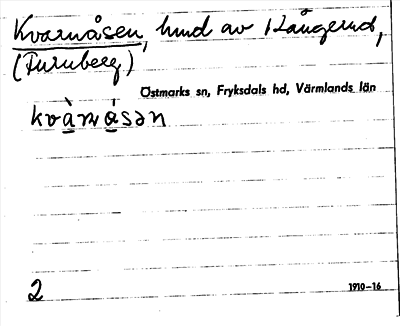 Kvarnåsen, hmd av Långerud,
(Furuberg)
Östmarks sn, Fryksdals hd, Värmlands län
kvà̱ṇá̱sən
2
1910-16